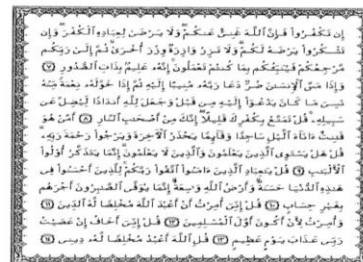 إِن تَكْفُرُوا۟ فَإِنَّ ٱللَّهَ غَنِىٌّ عَنكُمْ ۖ وَلَا يَرْضَىٰ لِعِبَادِهِ ٱلْكُفْرَ ۖ وَإِن
تَشْكُرُوا۟ يَرْضَهُ لَكُمْ ۗ وَلَا تَزِرُ وَازِرَةٌ وِزْرَ أُخْرَىٰ ۗ ثُمَّ إِلَىٰ رَبِّكُم
مَّرْجِعُكُمْ فَيُنَبِّئُكُم بِمَا كُنتُمْ تَعْمَلُونَ ۚ إِنَّهُۥ عَلِيمٌۢ بِذَاتِ ٱلصُّدُورِ ٧
وَإِذَا مَسَّ ٱلْإِنسَٰنَ ضُرٌّ دَعَا رَبَّهُۥ مُنِيبًا إِلَيْهِ ثُمَّ إِذَا خَوَّلَهُۥ نِعْمَةً مِّنْهُ
نَسِىَ مَا كَانَ يَدْعُوٓا۟ إِلَيْهِ مِن قَبْلُ وَجَعَلَ لِلَّهِ أَندَادًا لِّيُضِلَّ عَن
سَبِيلِهِۦ ۚ قُلْ تَمَتَّعْ بِكُفْرِكَ قَلِيلًا ۖ إِنَّكَ مِنْ أَصْحَٰبِ ٱلنَّارِ ٨ أَمَّنْ هُوَ
قَٰنِتٌ ءَانَآءَ ٱلَّيْلِ سَاجِدًا وَقَآئِمًا يَحْذَرُ ٱلْءَاخِرَةَ وَيَرْجُوا۟ رَحْمَةَ رَبِّهِۦ ۗ
قُلْ هَلْ يَسْتَوِى ٱلَّذِينَ يَعْلَمُونَ وَٱلَّذِينَ لَا يَعْلَمُونَ ۗ إِنَّمَا يَتَذَكَّرُ أُو۟لُوا۟
ٱلْأَلْبَٰبِ ٩ قُلْ يَٰعِبَادِ ٱلَّذِينَ ءَامَنُوا۟ ٱتَّقُوا۟ رَبَّكُمْ ۚ لِلَّذِينَ أَحْسَنُوا۟ فِى
هَٰذِهِ ٱلدُّنْيَا حَسَنَةٌ ۗ وَأَرْضُ ٱللَّهِ وَٰسِعَةٌ ۗ إِنَّمَا يُوَفَّى ٱلصَّٰبِرُونَ أَجْرَهُم
بِغَيْرِ حِسَابٍ ١٠ قُلْ إِنِّىٓ أُمِرْتُ أَنْ أَعْبُدَ ٱللَّهَ مُخْلِصًا لَّهُ ٱلدِّينَ ١١
وَأُمِرْتُ لِأَنْ أَكُونَ أَوَّلَ ٱلْمُسْلِمِينَ ١٢ قُلْ إِنِّىٓ أَخَافُ إِنْ عَصَيْتُ
رَبِّى عَذَابَ يَوْمٍ عَظِيمٍ ١٣ قُلِ ٱللَّهَ أَعْبُدُ مُخْلِصًا لَّهُۥ دِينِى ١٤